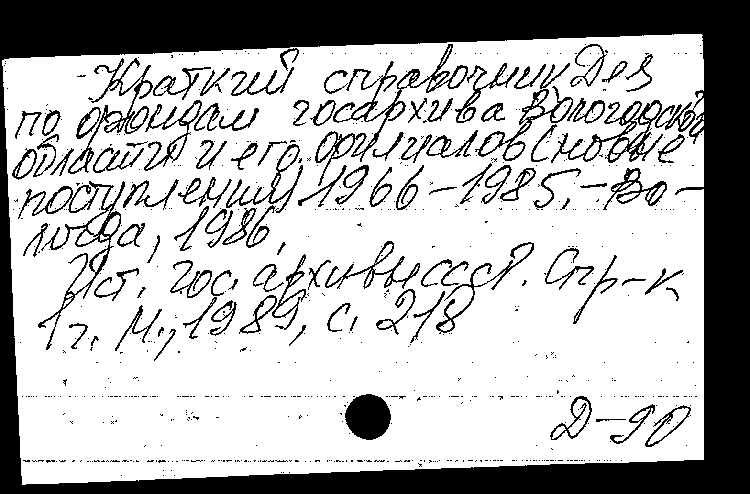 Краткий справочник Дез
по фондам госархива Вологодской
области и его филиалов (новые
поступления) 1966-1985, - Во-
логда, 1986,
Ист. Гос. архивы СССР. Спр-к
1 г. М., 1989, с. 218
Д-90